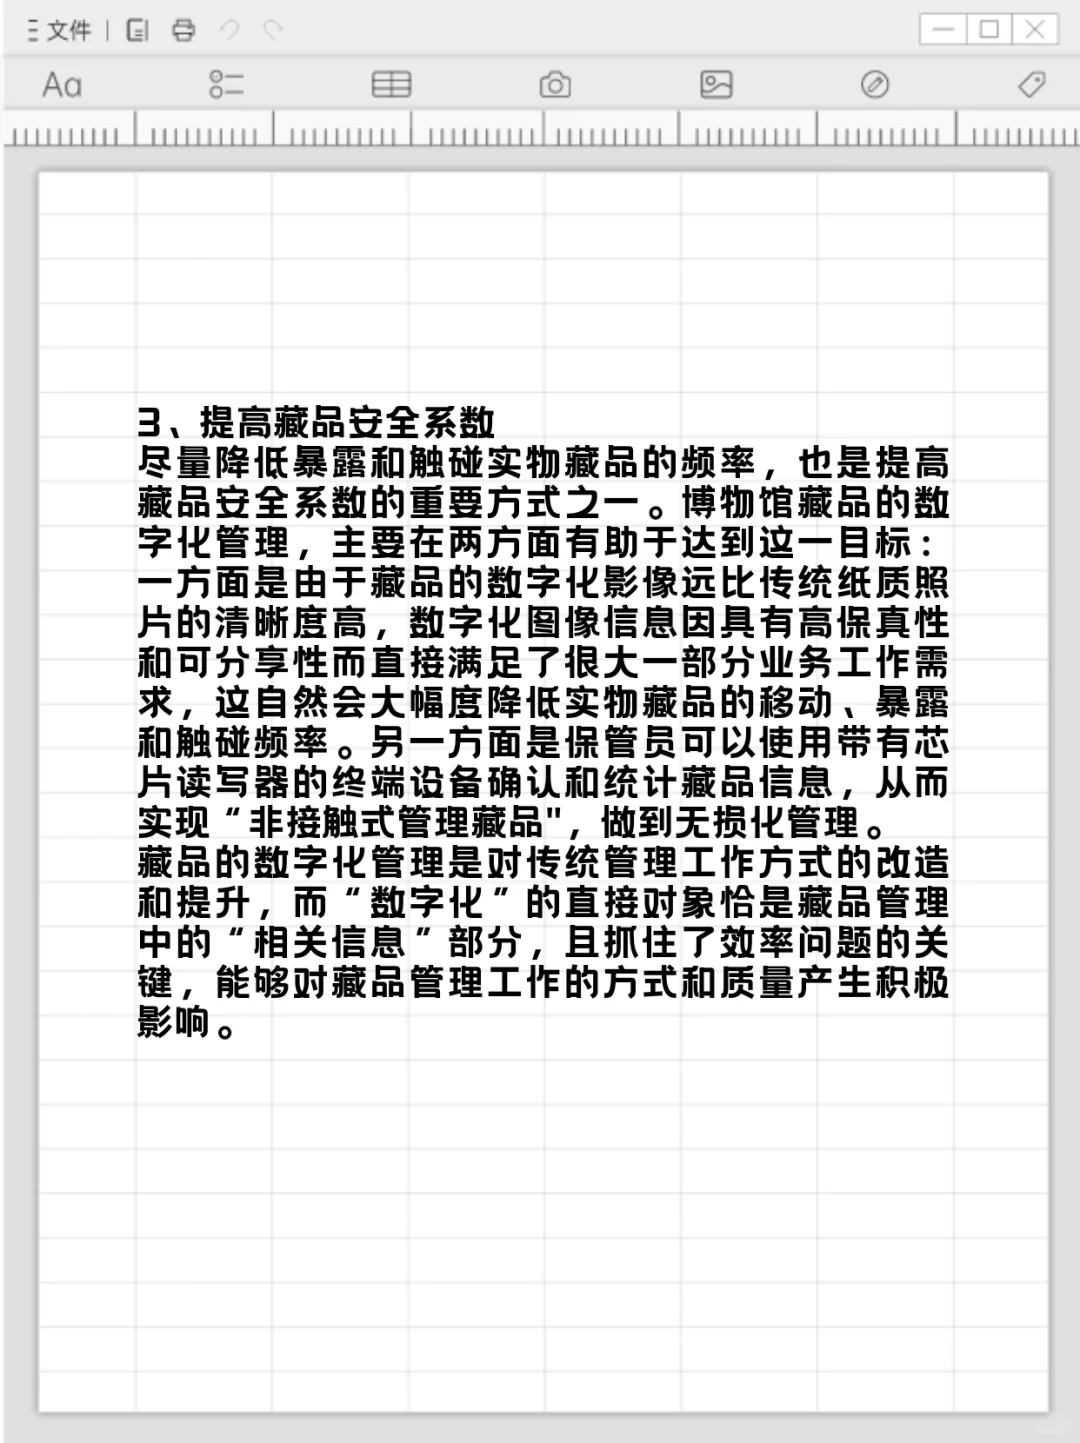 文件
Aa
3、提高藏品安全系数
尽量降低暴露和触碰实物藏品的频率，也是提高
藏品安全系数的重要方式之一。博物馆藏品的数
字化管理，主要在两方面有助于达到这一目标：
一方面是由于藏品的数字化影像远比传统纸质照
片的清晰度高，数字化图像信息因具有高保真性
和可分享性而直接满足了很大一部分业务工作需
求，这自然会大幅度降低实物藏品的移动、暴露
和触碰频率。另一方面是保管员可以使用带有芯
片读写器的终端设备确认和统计藏品信息，从而
实现“非接触式管理藏品"，做到无损化管理。
藏品的数字化管理是对传统管理工作方式的改造
和提升，而“数字化”的直接对象恰是藏品管理
中的“相关信息”部分，且抓住了效率问题的关
键，能够对藏品管理工作的方式和质量产生积极
影响。